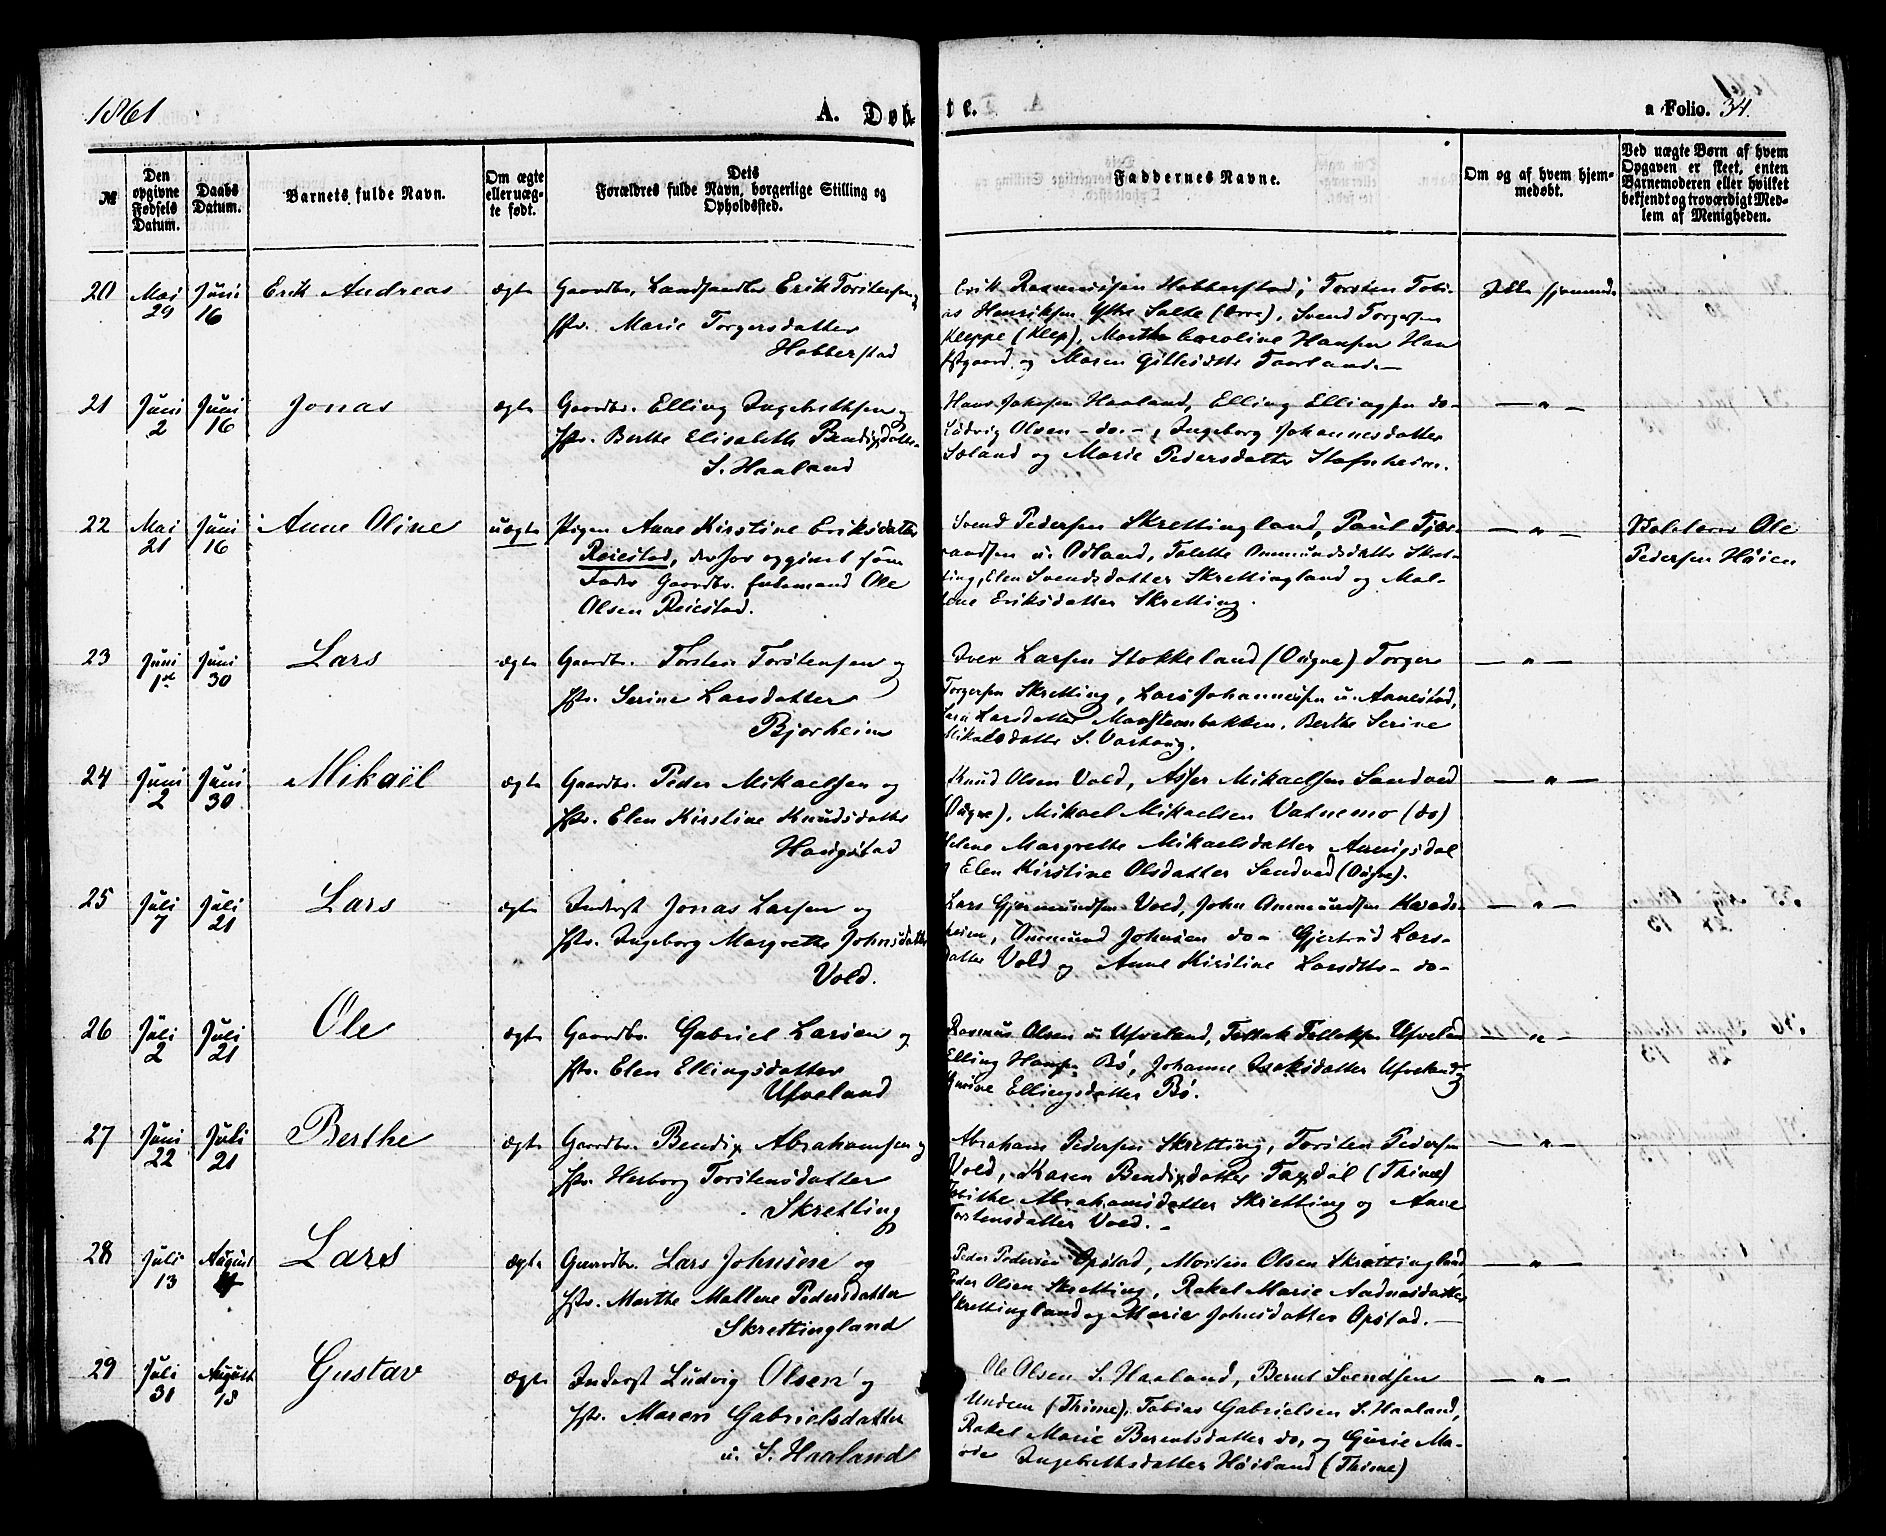 1861
A. Døbte.
a Folio. 34.
№
Den opgivne Fødsels Datum.
Daabs Datum.
Barnets fulde Navn.
Om ægte eller uægte født.
Dets Forældres fulde Navn, borgerlige Stilling og Opholdssted.
Faddernes Navne.
Om og af hvem hjemmedøbt.
Ved uægte Børn af hvem Opgaven er skeet, enten Barnemoderen eller hvilket bekjendt og troværdigt Medlem af Menigheden.
20 Mai 29 Juni 16 Erik Andreas ægte
Gaardbr. Erik Torstensen
Hstr. Marie Torgersdatter
Hobberstad
Erik Rasmussen Hobberstad, Torsten Tobi-
as Henriksen Ytre Salte (Orre), Svend Torgersen
Kleppe (Klep), Marthe Caroline Hansen Hau
gaard og Maren Gittlesdttr Taarland.—
Ikke hjemmed.
21 Juni 2 Juni 16 Jonas ægte
Gaardbr. Elling Ingebretsen og
Hstr. Berthe Elisabeth Bendixdatter
S. Haaland
Haaland, Elling Ellingsen do-
Ludvig Olsen - do. -, Ingeborg Johannesdatter
Søland og Marie Pedersdatter Stafnheim.
— " —
22 Mai 21 Juni 16 Anne Oline uægte
Pigen Anne Kirstine Eriksdatter
Reiestad, der har opgivet som
Fader Gaardbr. Enkemand Ole
Olsen Reiestad.
Svend Pedersen Skrettingland, Paul Tjær-
andsen u. Odland, Talette Ommundsdatter Skret-
ting, Elen Svendsdatter Skrettingland og Mal-
lene Eriksdatter Skretting.
— " —
Ole
Pedersen Høien
23 Juni 1st Juni 30 Lars ægte
Gaardbr. Torsten Torstensen og
Hstr. Serine Larsdatter
Bjorheim
Iver Larsen Stokkeland (Ougne) Torger
Torgersen Skretting, Lars Johannessen u. Aanestad,
Larsdatter Berthe Serine
Mikalsdatter S. Varhaug.
— " —
24 Juni 2 Juni 30 Mikaël ægte
Gaardbr. Peder Mikaelsen og
Hstr. Elen Kirstine Knudsdatter
Haugstad
Knud Olsen Vold, Asser Mikaelsen Sandved
(Ougne), Mikael Mikaelsen Vatnemo (do)
Helene Margrethe Mikaelsdatter
og Elen Kirstine Olsdatter Sandved (Ougne).
— " —
25 Juli 7 Juli 21 Lars ægte
Inderst Jonas Larsen og
Hstr. Ingeborg Margrethe Johnsdatter
Vold.
Lars Gjermundsen Vold, John Ommundsen
Ommund Johnsen do- Gjertrud Lars-
datter Vold og Anne Kirstine Larsdttr- do-
— " —
26 Juli 2 Juli 21 Ole ægte
Gaardbr. Gabriel Larsen og
Hstr. Elen Ellingsdatter
Ufveland
Rasmus Olsen u. Ufveland, Tollak Tollaksen Ufveland
Elling Hansen Bø, Johanne Isaksdatter Ufveland og
Ellingsdatter Bø.
— " —
27 Juni 22 Juli 21 Berthe ægte
Gaardbr. Bendix Abrahamsen og
Hstr. Herborg Torstensdatter
Skretting
Abraham Pedersen Skretting, Torsten Pedersen
Vold, Karen Bendixdatter Taxdal (Thime)
Abrahamsdatter Skretting og Anne
Torstensdatter Vold. -
— " —
28 Juli 13 August 4 Lars ægte
Gaardbr. Lars Johnsen og
Hstr. Marthe Mallene Pedersdatter
Skrettingland
Peder Pedersen Opstad, Morten Olsen Skrettingland,
Peder Olsen Skretting, Rakel Marie Aadnesdatter
Skrettingland og Marie Johnsdatter Opstad.—
— " —
29 Juli 31 August 18 Gustav ægte
Inderst Ludvig Olsen og
Hstr. Maren Gabrielsdatter
u. S. Haaland
Ole Olsen S. Haaland, Bernt Svendsen
Undem (Thime), Tobias Gabrielsen S. Haaland,
Rakel Marie Berentsdatter do, og Gurie Ma-
Ingebretsdatter Høiland (Thime)
— " —